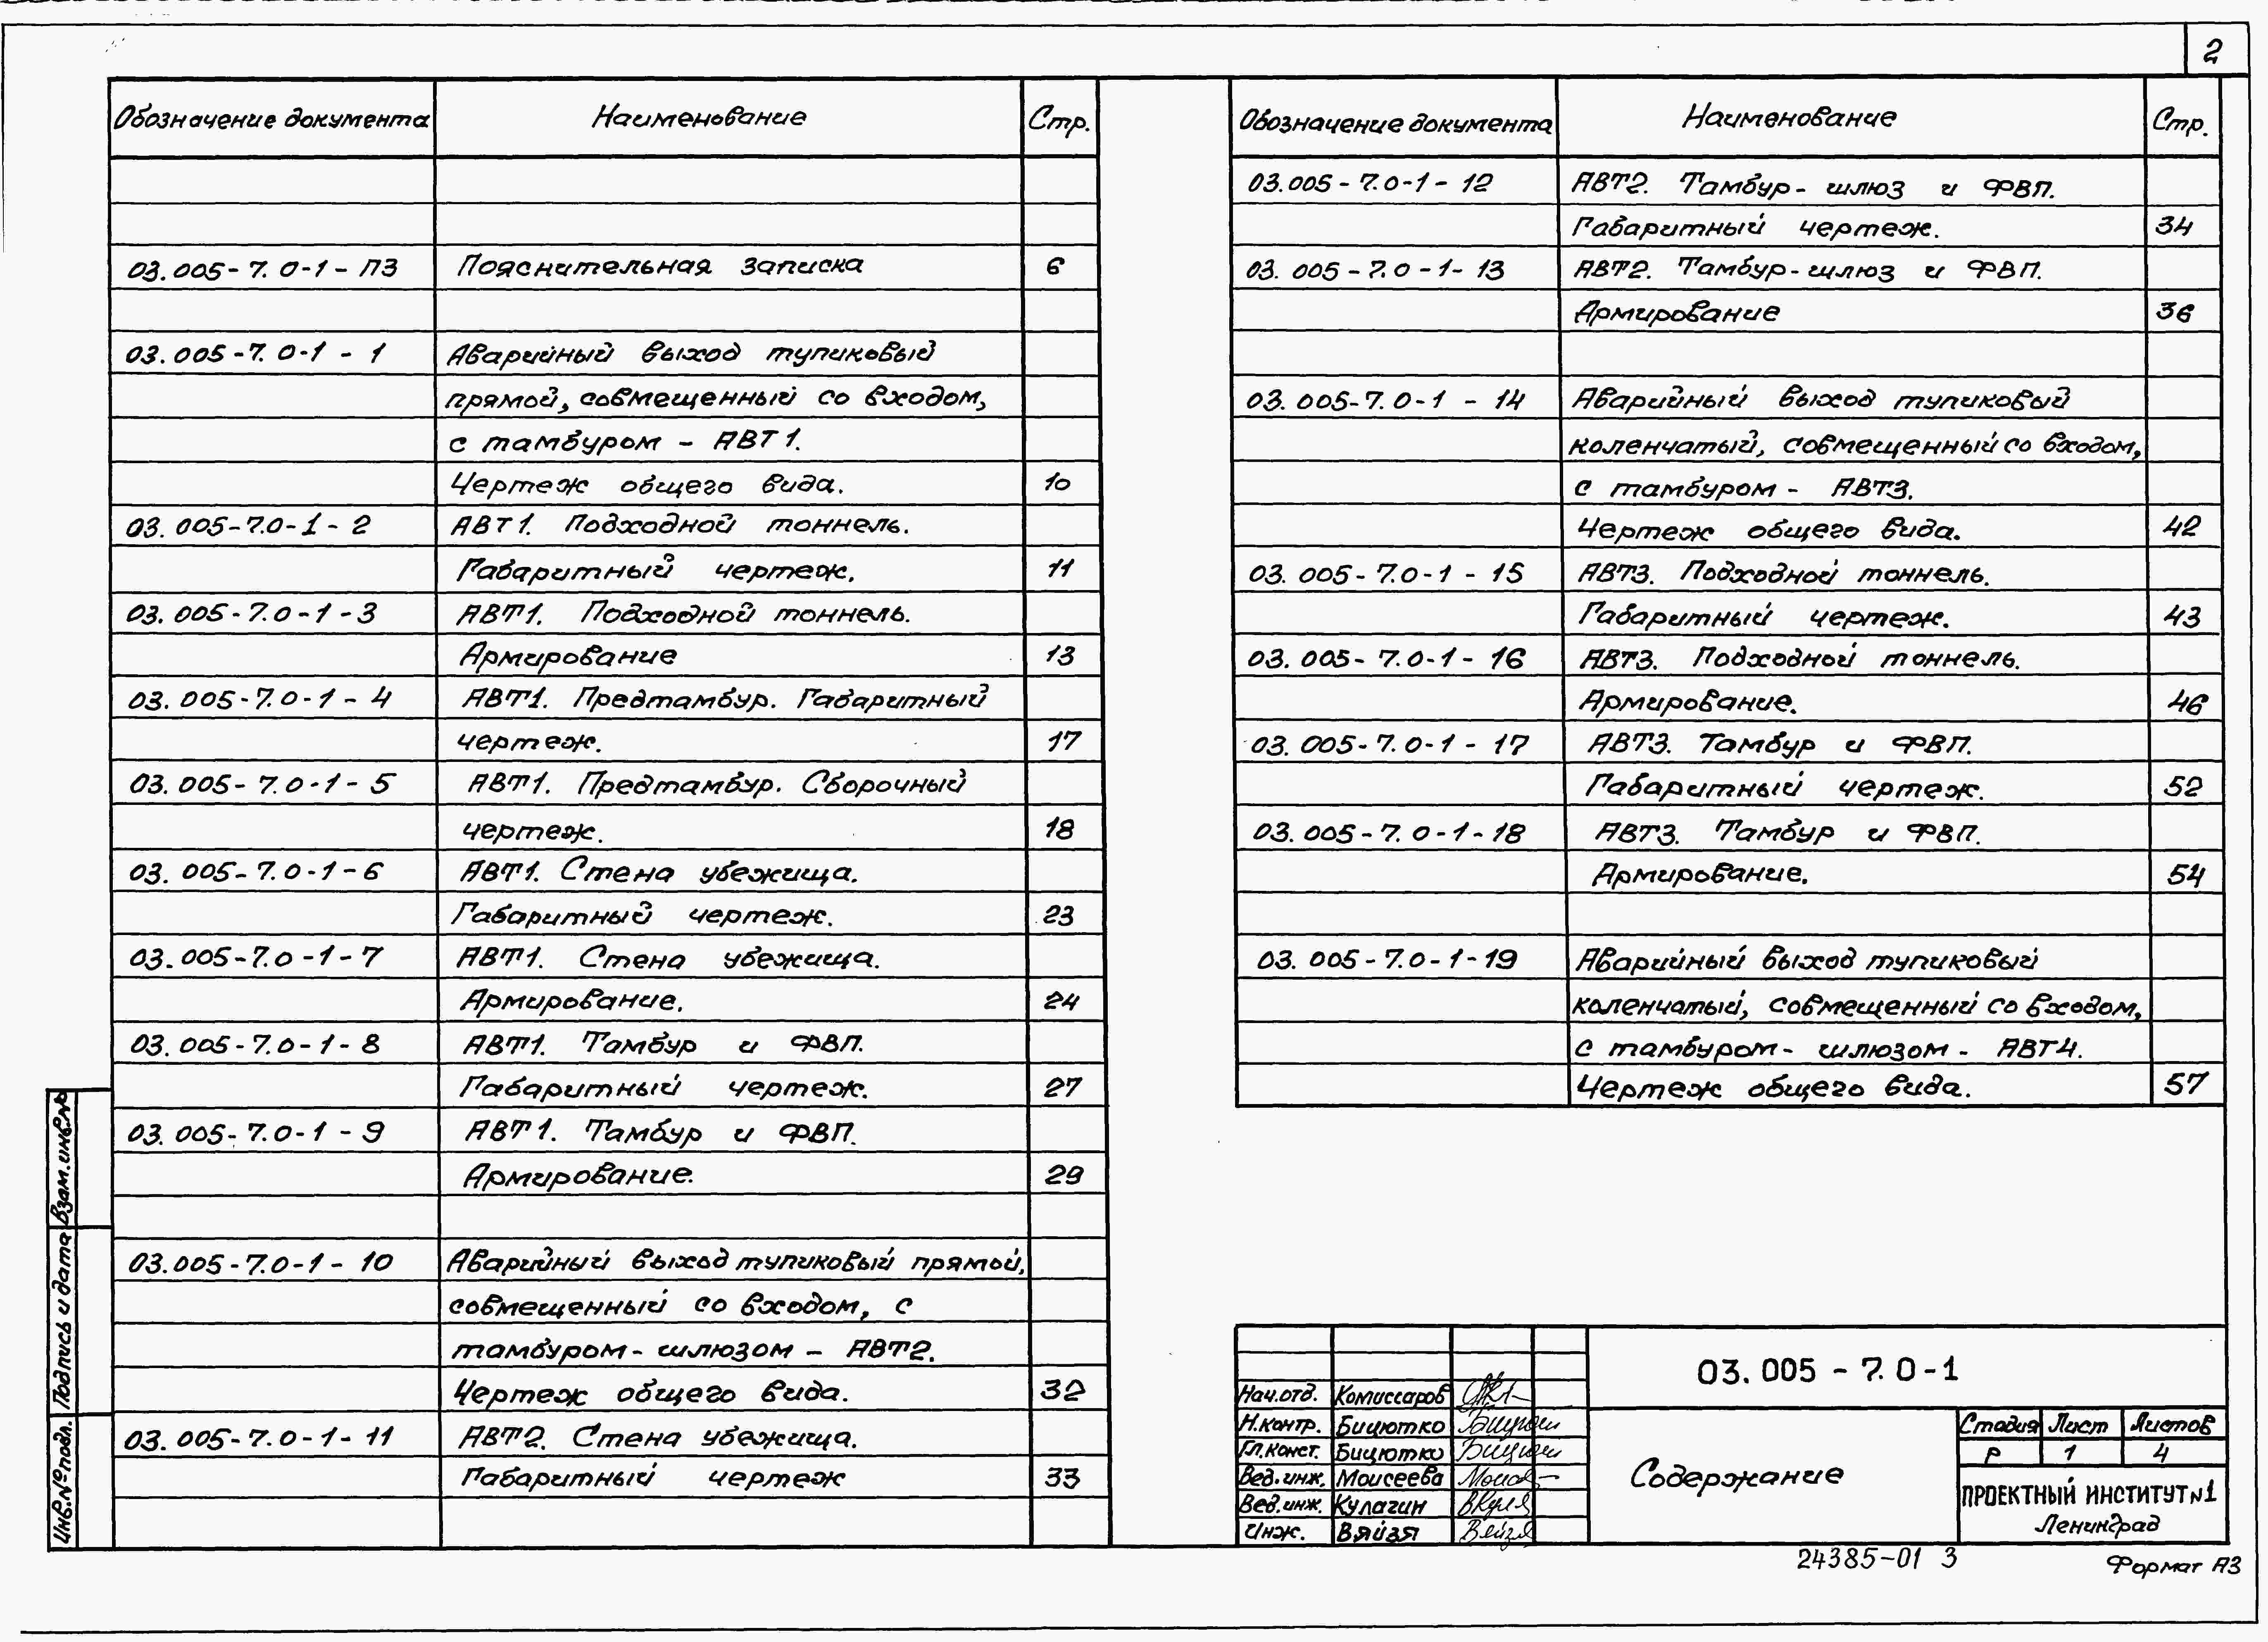 2
Обозначение документа Наименование Стр.
03.005-7.0-1-ПЗ Пояснительная записка 6
03.005-7.0-1-1 Аварийный выход тупиковый
прямой, совмещенный со входом,
с тамбуром - АВТ1.
Чертеж общего вида. 10
03.005-7.0-1-2 АВТ1. Подходной тоннель.
Габаритный чертеж. 11
03.005-7.0-1-3 АВТ1. Подходной тоннель.
Армирование 13
03.005-7.0-1-4 АВТ1. Предтамбур. Габаритный
чертеж. 17
03.005-7.0-1-5 АВТ1. Предтамбур. Сборочный
чертеж. 18
03.005-7.0-1-6 АВТ1. Стена убежища.
Габаритный чертеж. 23
03.005-7.0-1-7 АВТ1. Стена убежища.
Армирование. 24
03.005-7.0-1-8 АВТ1. Тамбур и ФВП.
Габаритный чертеж. 27
03.005-7.0-1-9 АВТ1. Тамбур и ФВП.
Армирование. 29
03.005-7.0-1-10 Аварийный выход тупиковый прямой,
совмещенный со входом, с
тамбуром-шлюзом - АВТ2.
Чертеж общего вида. 32
03.005-7.0-1-11 АВТ2. Стена убежища.
Габаритный чертеж 33
Обозначение документа Наименование Стр.
03.005-7.0-1-12 АВТ2. Тамбур-шлюз и ФВП.
Габаритный чертеж. 34
03.005-7.0-1-13 АВТ2. Тамбур-шлюз и ФВП.
Армирование 36
03.005-7.0-1-14 Аварийный выход тупиковый
коленчатый, совмещенный со входом,
с тамбуром - АВТ3.
Чертеж общего вида. 42
03.005-7.0-1-15 АВТ3. Подходной тоннель.
Габаритный чертеж. 43
03.005-7.0-1-16 АВТ3. Подходной тоннель.
Армирование. 46
03.005-7.0-1-17 АВТ3. Тамбур и ФВП.
Габаритный чертеж. 52
03.005-7.0-1-18 АВТ3. Тамбур и ФВП.
Армирование. 54
03.005-7.0-1-19 Аварийный выход тупиковый
коленчатый, совмещенный со входом,
с тамбуром-шлюзом - АВТ4.
Чертеж общего вида. 57
Взам.инв.№
Подпись и дата
Инв.№ подл.
03.005-7.0-1
Нач.отд. Комиссаров
Н.контр. Бицютко
Гл.конст. Бицютко
Вед.инж. Моисеева
Вед.инж. Кулагин
Инж. Вяйзя
Содержание
Стадия Лист Листов
Р 1 4
ПРОЕКТНЫЙ ИНСТИТУТ №1
Ленинград
24385-01 3
Формат А3